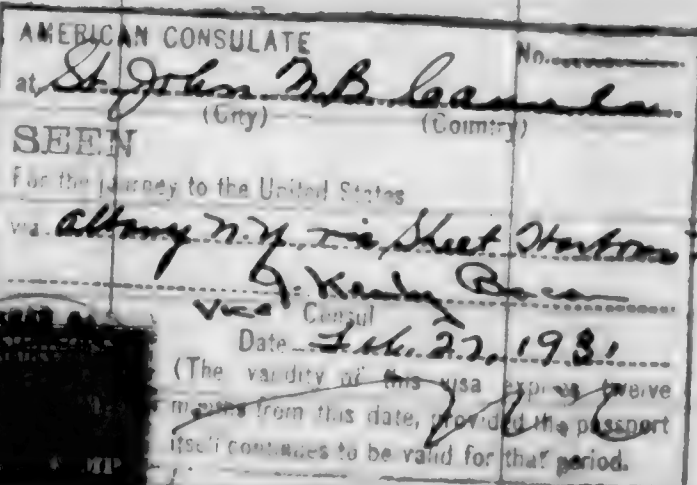 AMERICAN CONSULATE
No.
at St. John N.B. Canada
(City) (Country)
SEEN
For the journey to the United States
via Albany N.Y. via Sheet Harbour
J. Bacon
Vice Consul
Date Feb. 27, 1931
(The validity of this visa expires twelve
months from this date, provided the passport
itself continues to be valid for that period.